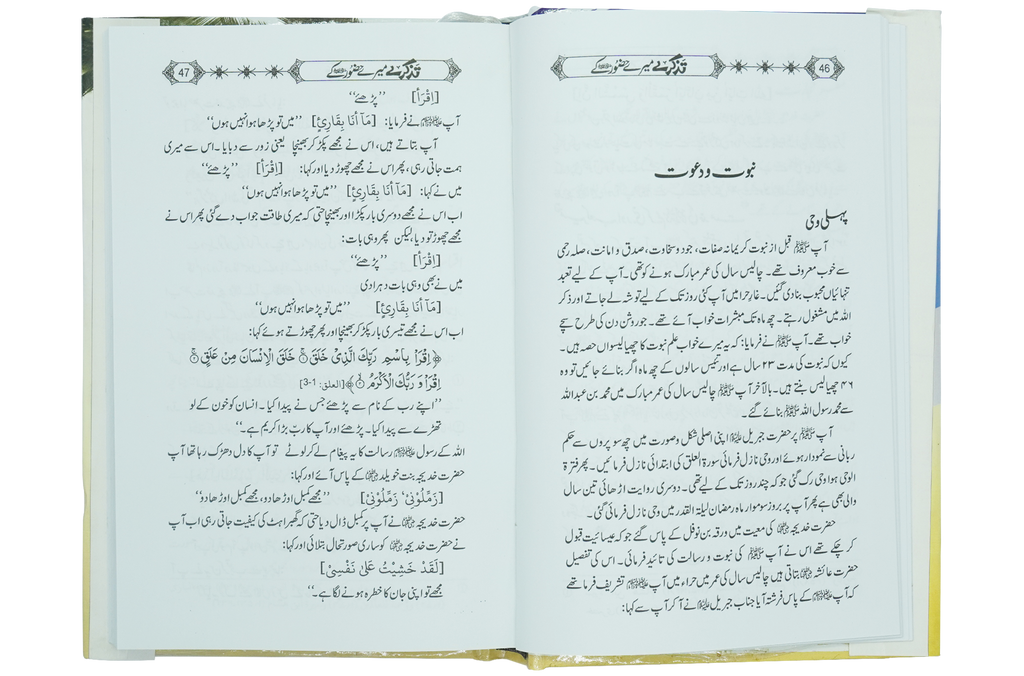 تذکرے میرے حضور ﷺ کے
46
نبوت و دعوت
پہلی وحی
آپ ﷺ قبل از نبوت کریمانہ صفات، جود و سخاوت، صدق و امانت، صلہ رحمی
سے خوب معروف تھے۔ چالیس سال کی عمر مبارک ہونے کو تھی۔ آپ کے لیے تعبد
تنہائیاں محبوب بنا دی گئیں۔ غارِ حرا میں آپ کئی روز تک کے لیے توشہ لے جاتے اور ذکر
اللہ میں مشغول رہتے۔ چھ ماہ تک مبشرات خواب آئے تھے۔ جو روشن دن کی طرح سچے
خواب تھے۔ آپ ﷺ نے فرمایا: کہ یہ میرے خواب علم نبوت کا چھیالیسواں حصہ ہیں۔
کیوں کہ نبوت کی مدت ۲۳ سال ہے اور تئیس سالوں کے چھ ماہ اگر بنائے جائیں تو وہ
۴۶ چھیالیس بنتے ہیں۔ بالآخر آپ ﷺ چالیس سال کی عمر مبارک میں محمد بن عبداللہ
سے محمد رسول اللہ ﷺ بنائے گئے۔
آپ ﷺ پر حضرت جبریل علیہ السلام اپنی اصلی شکل و صورت میں چھ سو پروں سے حکم
ربانی سے نمودار ہوئے اور وحی نازل فرمائی سورۃ العلق کی ابتدائی نازل فرمائیں۔ پھر فترۃ
الوحی ہوا وحی رک گئی جو کہ چند روز تک کے لیے تھی۔ دوسری روایت اڑھائی تین سال
والی بھی ہے پھر آپ پر بروز سوموار ماہ رمضان لیلۃ القدر میں وحی نازل فرمائی گئی۔
حضرت خدیجہ رضی اللہ عنہا کی معیت میں ورقہ بن نوفل کے پاس گئے جو کہ عیسائیت قبول
کر چکے تھے اس نے آپ ﷺ کی نبوت و رسالت کی تائید فرمائی۔ اس کی تفصیل
حضرت عائشہ رضی اللہ عنہا بتاتی ہیں چالیس سال کی عمر میں حراء میں آپ ﷺ تشریف فرما تھے
کہ آپ ﷺ کے پاس فرشتہ آیا جناب جبریل علیہ السلام نے آ کر آپ سے کہا:
تذکرے میرے حضور ﷺ کے
47
[اِقْرَأْ] ’’پڑھئے‘‘
آپ ﷺ نے فرمایا: [مَآ أَنَا بِقَارِئٍ] ’’میں تو پڑھا ہوا نہیں ہوں‘‘
آپ بتاتے ہیں، اس نے مجھے پکڑ کر بھینچا یعنی زور سے دبایا۔ اس سے میری
ہمت جاتی رہی، پھر اس نے مجھے چھوڑ دیا اور کہا: [اِقْرَأْ] ’’پڑھئے‘‘
میں نے کہا: [مَآ أَنَا بِقَارِئٍ] ’’میں تو پڑھا ہوا نہیں ہوں‘‘
اب اس نے مجھے دوسری بار پکڑا اور بھینچا حتی کہ میری طاقت جواب دے گئی پھر اس نے
مجھے چھوڑ تو دیا، لیکن پھر وہی بات:
[اِقْرَأْ] ’’پڑھئے‘‘
میں نے بھی وہی بات دہرا دی
[مَآ أَنَا بِقَارِئٍ] ’’میں تو پڑھا ہوا نہیں ہوں‘‘
اب اس نے مجھے تیسری بار پکڑ کر بھینچا اور پھر چھوڑتے ہوئے کہا:
﴿اِقْرَاْ بِاسْمِ رَبِّكَ الَّذِيْ خَلَقَ ۚ خَلَقَ الْاِنْسَانَ مِنْ عَلَقٍ ۚ
اِقْرَاْ وَ رَبُّكَ الْاَكْرَمُ ۙ﴾ [العلق: 1-3]
’’اپنے رب کے نام سے پڑھئے جس نے پیدا کیا۔ انسان کو خون کے لو
تھڑے سے پیدا کیا۔ پڑھئے اور آپ کا ربّ بڑا کریم ہے۔‘‘
اللہ کے رسول ﷺ رسالت کا یہ پیغام لے کر لوٹے تو آپ کا دل دھڑک رہا تھا آپ
حضرت خدیجہ بنت خویلد رضی اللہ عنہا کے پاس آئے اور کہا:
[زَمِّلُوْنِیْ‘ زَمِّلُوْنِیْ] ’’مجھے کمبل اوڑھا دو، مجھے کمبل اوڑھا دو‘‘
حضرت خدیجہ رضی اللہ عنہا نے آپ پر کمبل ڈال دیا حتی کہ گھبراہٹ کی کیفیت جاتی رہی اب آپ
نے حضرت خدیجہ رضی اللہ عنہا کو ساری صورتحال بتلائی اور کہا:
[لَقَدْ خَشِيْتُ عَلٰی نَفْسِيْ]
مجھے تو اپنی جان کا خطرہ ہونے لگا ہے۔‘‘